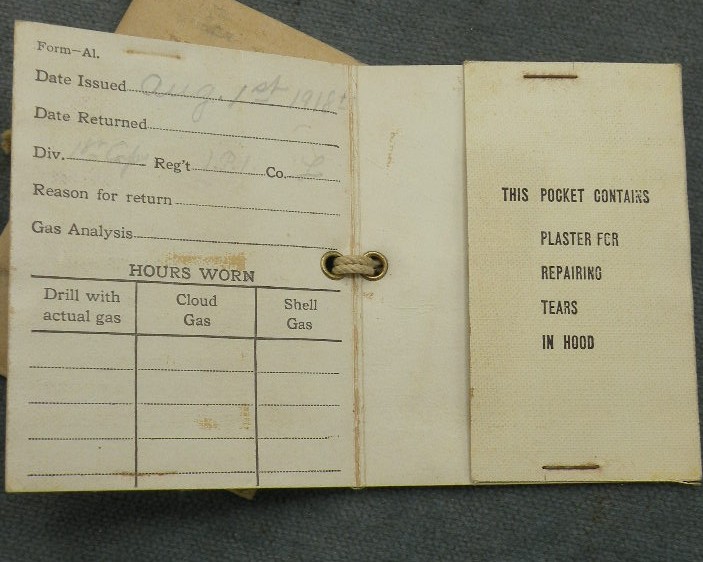 Form—Al.
Date Issued Aug. 1st 1918
Date Returned
Div. Reg't Co.
Reason for return
Gas Analysis
HOURS WORN
Drill with actual gas
Cloud Gas
Shell Gas
THIS POCKET CONTAINS
PLASTER FOR
REPAIRING
TEARS
IN HOOD